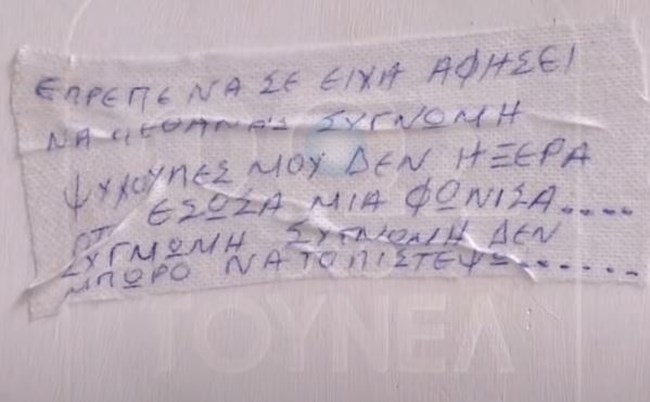 ΕΠΡΕΠΕ ΝΑ ΣΕ ΕΙΧΑ ΑΦΗΣΕΙ
ΝΑ ΠΕΘΑΝΕΙΣ ΣΥΓΝΩΜΗ
ΨΥΧΟΥΛΕΣ ΜΟΥ ΔΕΝ ΗΞΕΡΑ
ΟΤΙ ΕΣΩΣΑ ΜΙΑ ΦΩΝΙΣΑ.....
ΣΥΓΜΩΜΗ ΣΥΓΝΩΜΗ ΔΕΝ
ΜΠΩΡΟ ΝΑ ΤΟ ΠΙΣΤΕΨΩ.......
ΤΟΥΝΕΛ